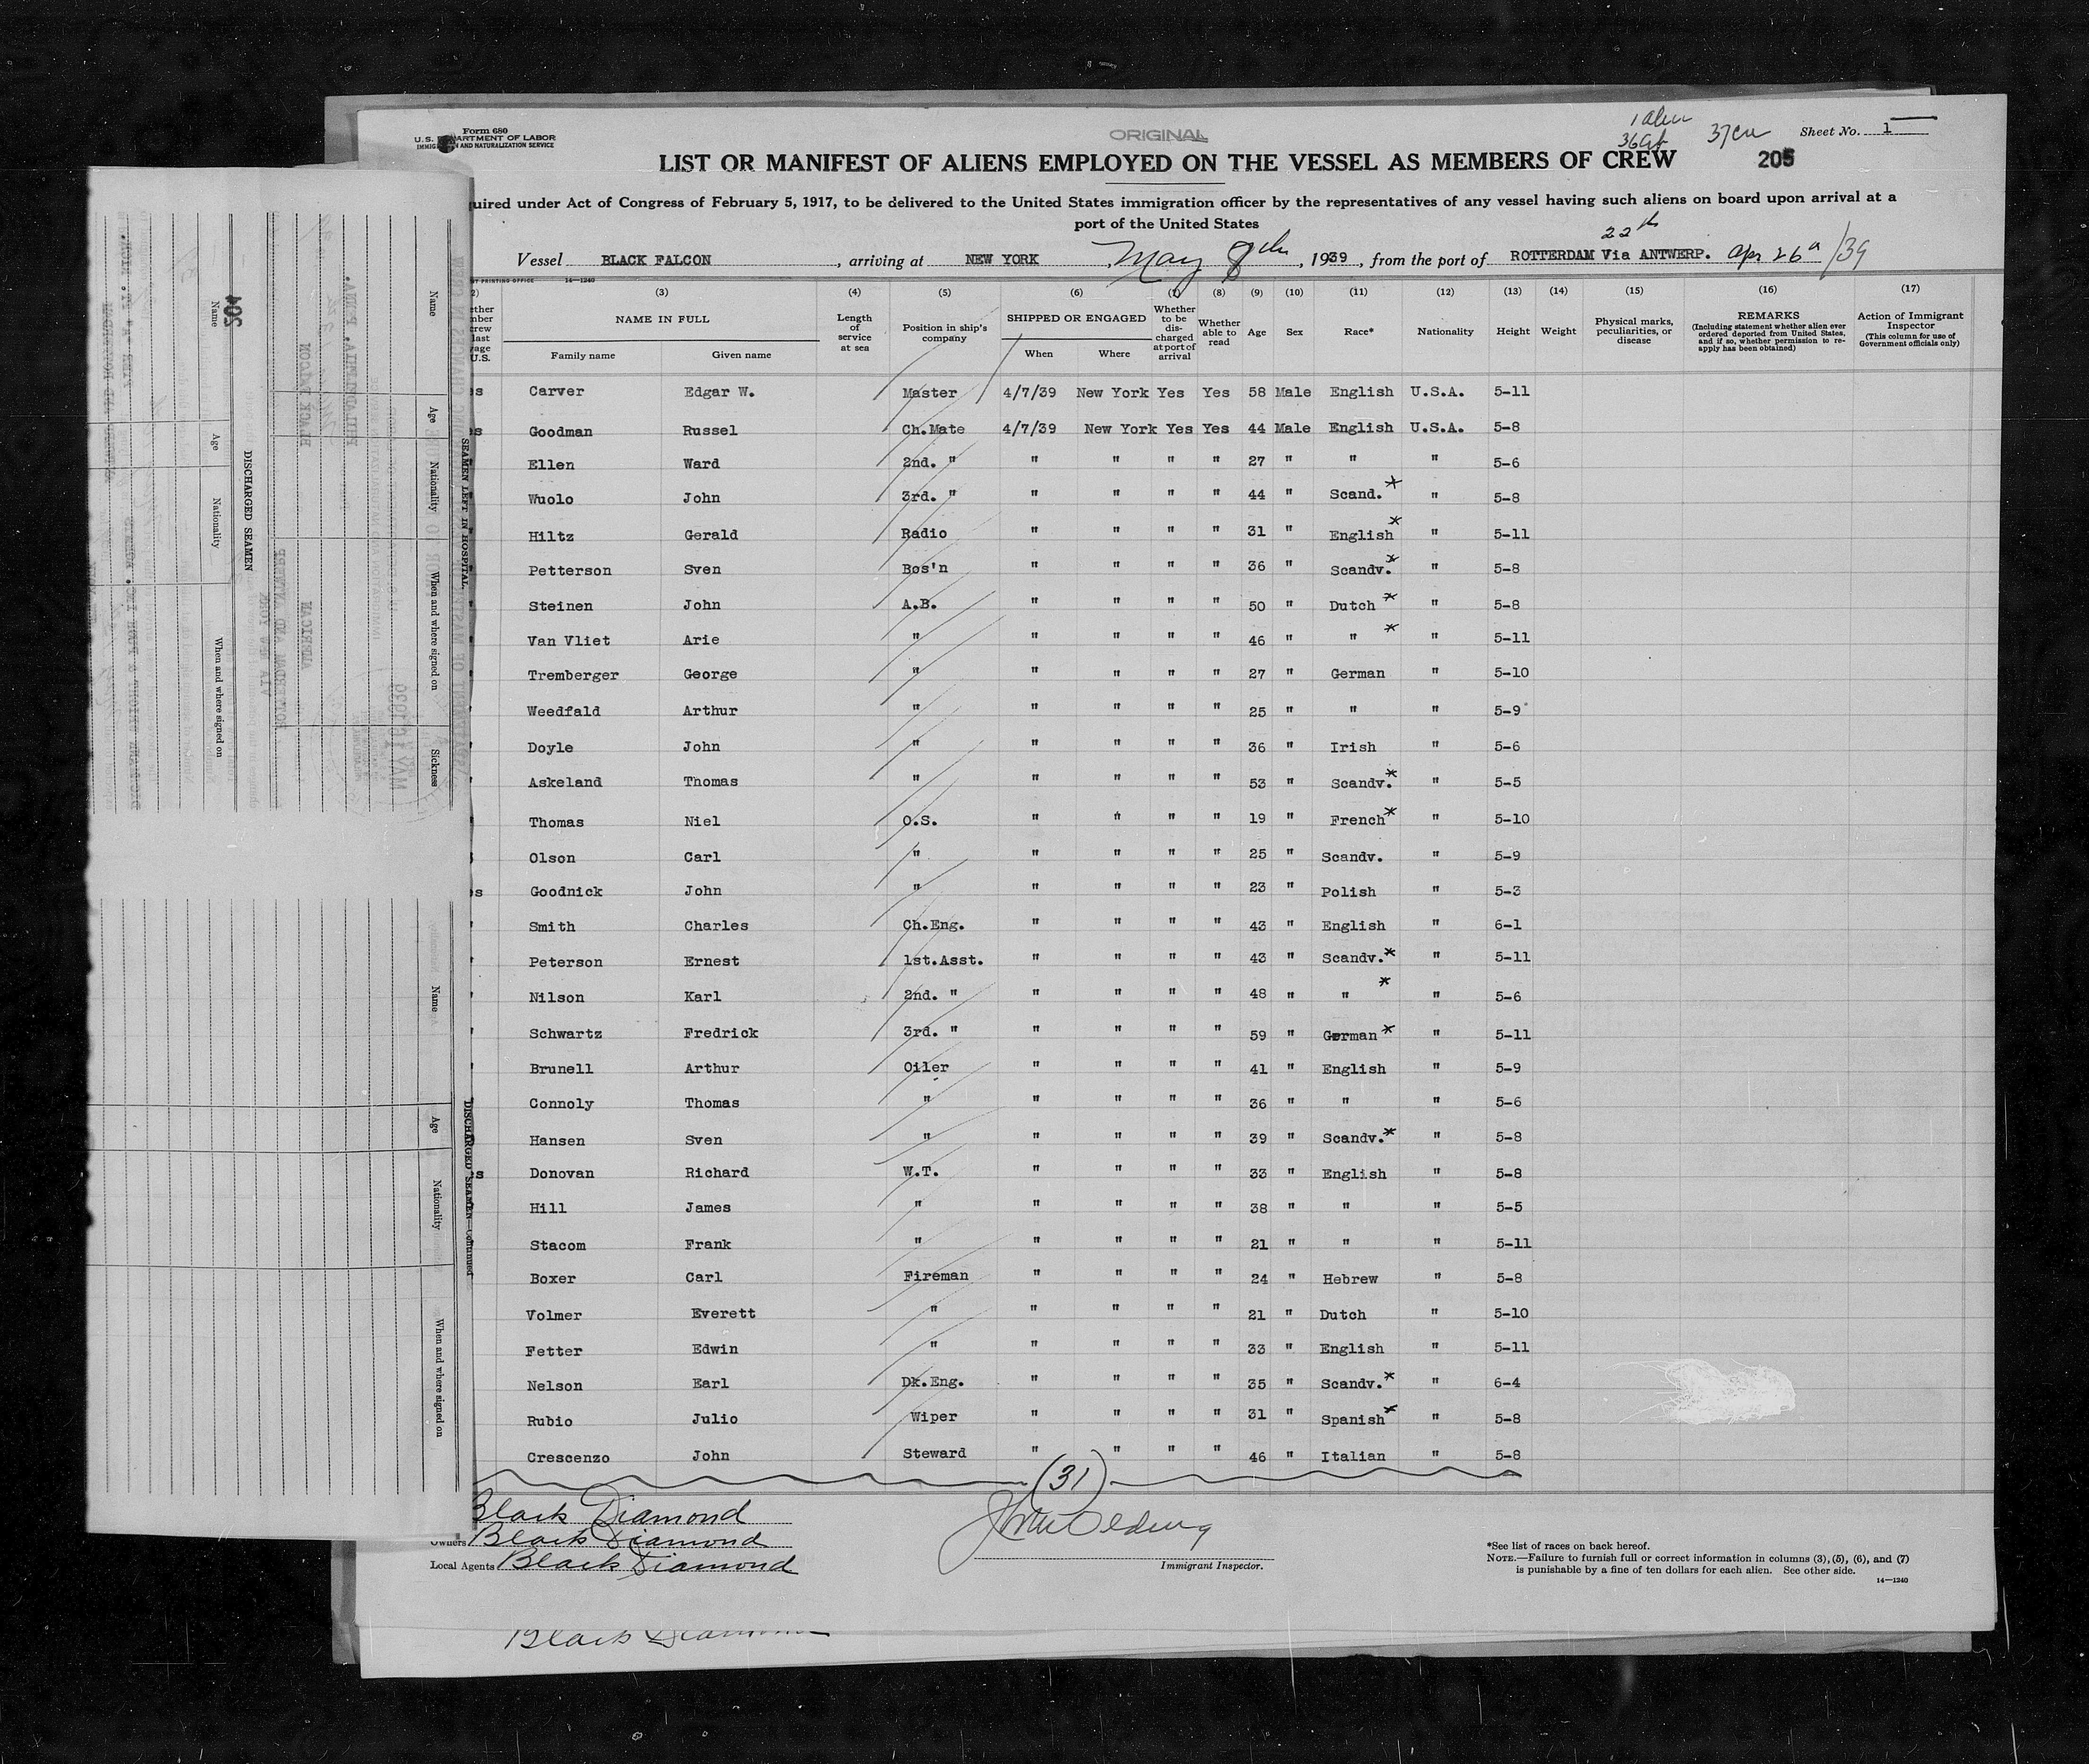 Form 680
U.S. DEPARTMENT OF LABOR
IMMIGRATION AND NATURALIZATION SERVICE
ORIGINAL
1 alien
36 Cit
37 cu
Sheet No. 1
LIST OR MANIFEST OF ALIENS EMPLOYED ON THE VESSEL AS MEMBERS OF CREW
205
uired under Act of Congress of February 5, 1917, to be delivered to the United States immigration officer by the representatives of any vessel having such aliens on board upon arrival at a
port of the United States
22th
Vessel BLACK FALCON, arriving at NEW YORK, May 8th, 1939, from the port of ROTTERDAM Via ANTWERP. Apr 26 /39
14—1240
(3) (4) (5) (6) (7) (8) (9) (10) (11) (12) (13) (14) (15) (16) (17)
NAME IN FULL
Family name Given name
Length of service at sea
Position in ship's company
SHIPPED OR ENGAGED
When Where
Whether to be discharged at port of arrival
Whether able to read
Age Sex Race* Nationality Height Weight
Physical marks, peculiarities, or disease
REMARKS
(Including statement whether alien ever ordered deported from United States, and if so, whether permission to reapply has been obtained)
Action of Immigrant Inspector
(This column for use of Government officials only)
s Carver Edgar W. Master 4/7/39 New York Yes Yes 58 Male English U.S.A. 5-11
s Goodman Russel Ch.Mate 4/7/39 New York Yes Yes 44 Male English U.S.A. 5-8
Ellen Ward 2nd. " " " " " 27 " " " 5-6
Wuolo John 3rd. " " " " " 44 " Scand.* " 5-8
Hiltz Gerald Radio " " " " 31 " English* " 5-11
Petterson Sven Bos'n " " " " 36 " Scandv.* " 5-8
Steinen John A.B. " " " " 50 " Dutch * " 5-8
Van Vliet Arie " " " " " 46 " " * " 5-11
Tremberger George " " " " " 27 " German " 5-10
Weedfald Arthur " " " " " 25 " " " 5-9
Doyle John " " " " " 36 " Irish " 5-6
Askeland Thomas " " " " " 53 " Scandv.* " 5-5
Thomas Niel O.S. " " " " 19 " French* " 5-10
Olson Carl " " " " " 25 " Scandv. " 5-9
s Goodnick John " " " " " 23 " Polish " 5-3
Smith Charles Ch.Eng. " " " " 43 " English " 6-1
Peterson Ernest 1st.Asst. " " " " 43 " Scandv.* " 5-11
Nilson Karl 2nd. " " " " " 48 " " * " 5-6
Schwartz Fredrick 3rd. " " " " " 59 " German * " 5-11
Brunell Arthur Oiler " " " " 41 " English " 5-9
Connoly Thomas " " " " " 36 " " " 5-6
Hansen Sven " " " " " 39 " Scandv.* " 5-8
s Donovan Richard W.T. " " " " 33 " English " 5-8
Hill James " " " " " 38 " " " 5-5
Stacom Frank " " " " " 21 " " " 5-11
Boxer Carl Fireman " " " " 24 " Hebrew " 5-8
Volmer Everett " " " " " 21 " Dutch " 5-10
Fetter Edwin " " " " " 33 " English " 5-11
Nelson Earl Dk.Eng. " " " " 35 " Scandv.* " 6-4
Rubio Julio Wiper " " " " 31 " Spanish* " 5-8
Crescenzo John Steward " " " " 46 " Italian " 5-8
(31)
Black Diamond
Owners Black Diamond
Local Agents Black Diamond
Immigrant Inspector.
*See list of races on back hereof.
NOTE.—Failure to furnish full or correct information in columns (3), (5), (6), and (7)
is punishable by a fine of ten dollars for each alien. See other side.
14—1240
Black Diamond
204
Name Age Nationality When and where signed on
DISCHARGED SEAMEN
Name Age Nationality When and where signed on Sickness
SEAMEN LEFT IN HOSPITAL
Name Age Nationality When and where signed on
DISCHARGED SEAMEN—Continued